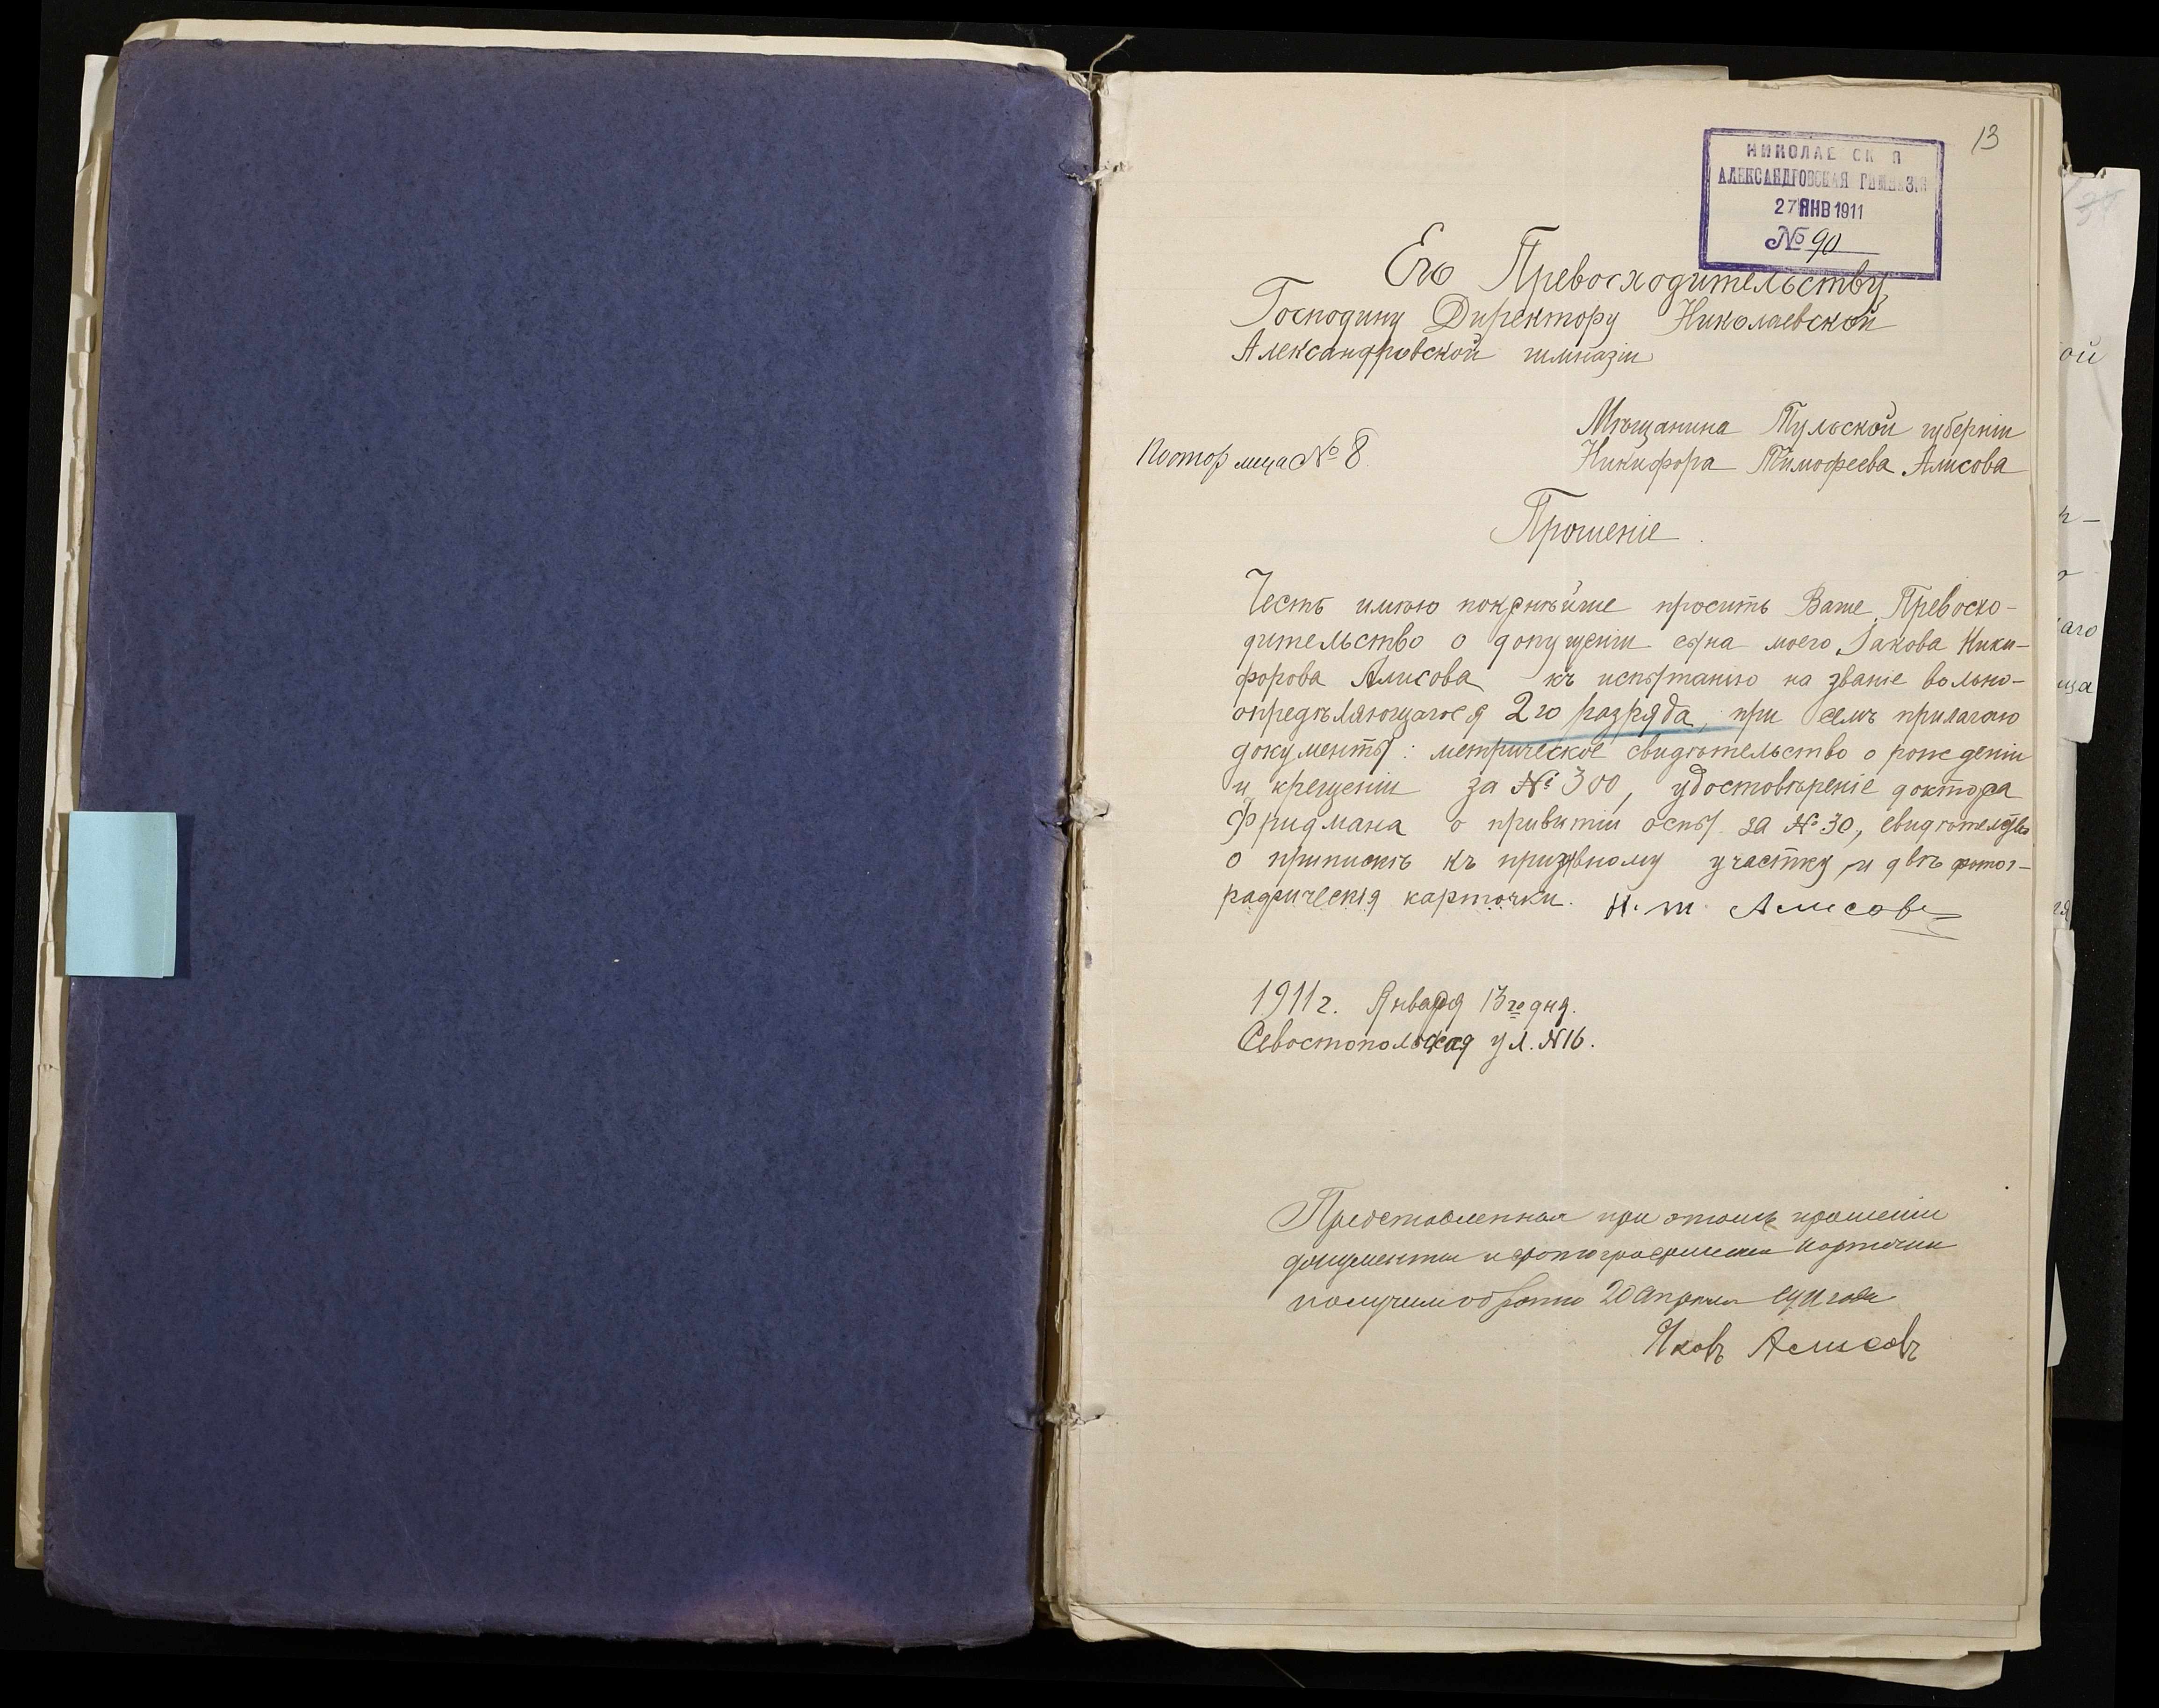 13
НИКОЛАЕ СК Я
АЛЕКСАНДРОВСКАЯ ГИМНАЗІЯ
27 ЯНВ 1911
№ 90
Его Превосходительству
Господину Директору Николаевской
Александровской гимназіи
Мѣщанина Тульской губерніи
Никифора Тимофеева Алисова
Постор лица № 8
Прошеніе
Честь имѣю покорнѣйше просить Ваше Превосхо-
дительство о допущеніи сына моего Іакова Ники-
форова Алисова къ испытанію на званіе вольно-
опредѣляющагося 2го разряда, при семъ прилагаю
документы: метрическое свидѣтельство о рождении
и крещеніи за № 300, удостовѣреніе доктора
Фридмана о привитіи оспы за № 30, свидѣтельство
о припискѣ къ призывному участку и двѣ фотог-
рафическія карточки. Н. т. Алисовъ
1911 г. Января 13го дня.
Севостопольская ул. № 16.
Предствленная при этомъ прошении
документы и фотографическия карточки
получилъ обратно 20 апреля 1911 года
Яковъ Алисовъ